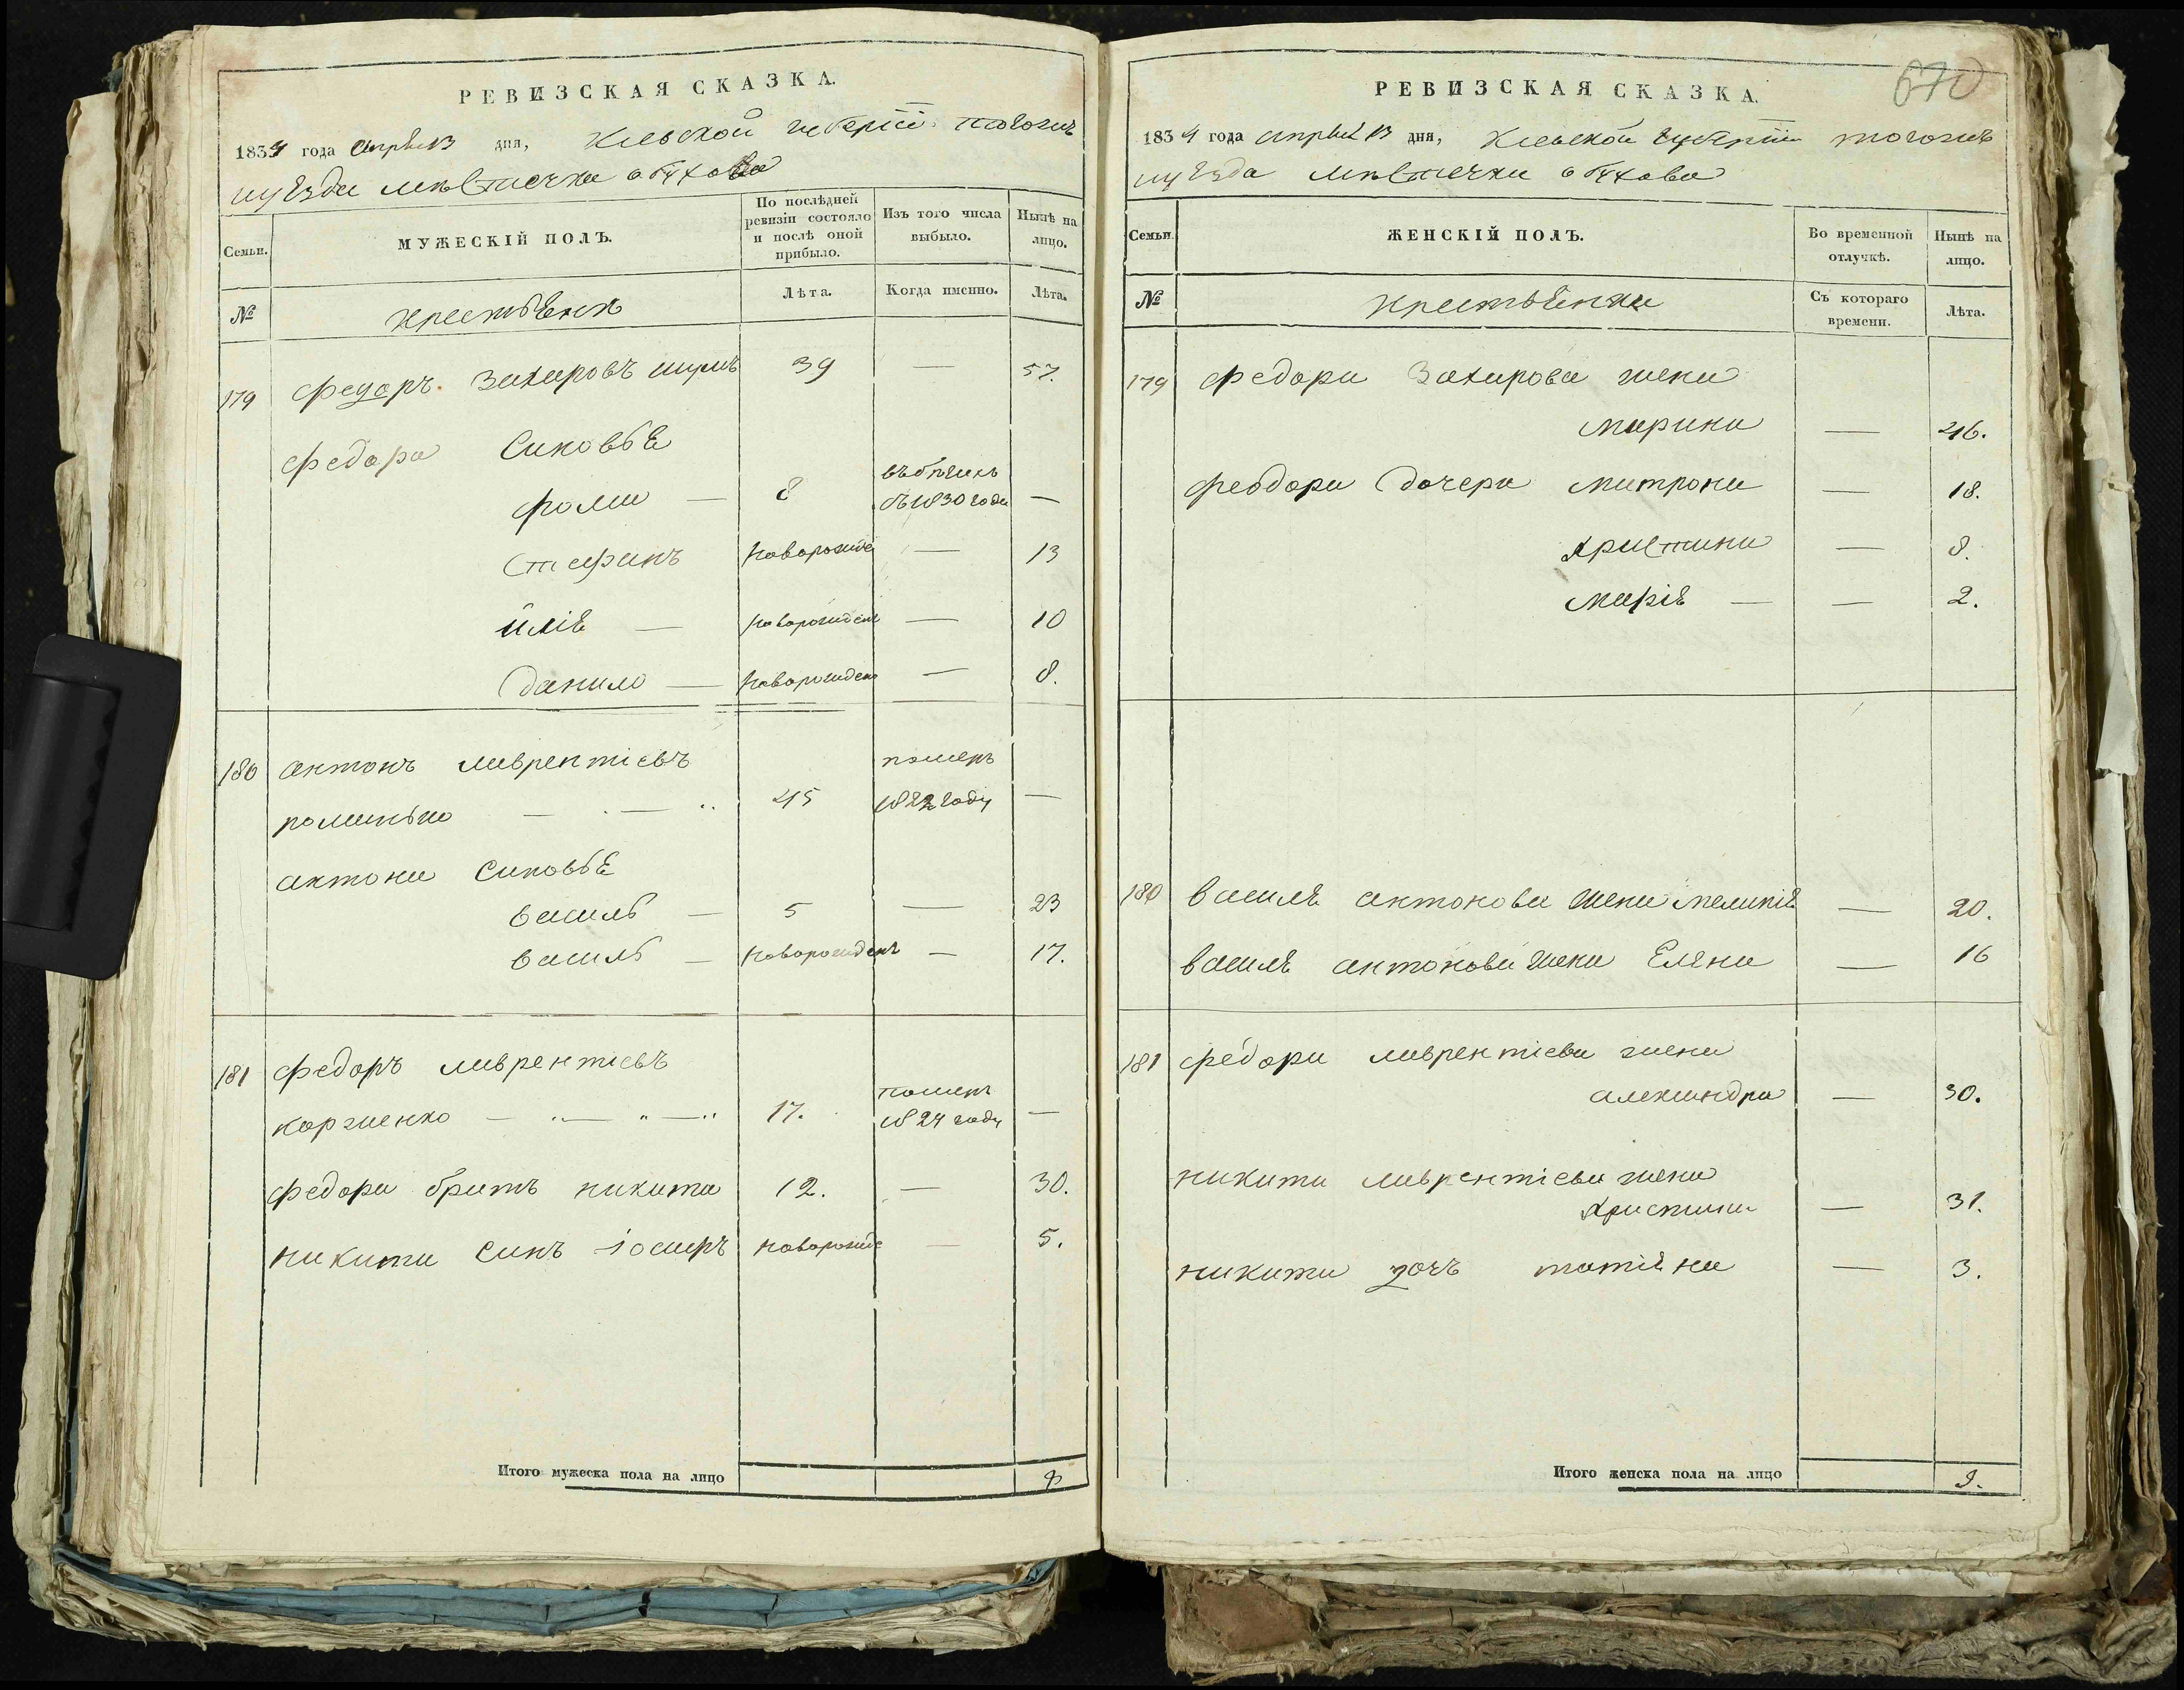 РЕВИЗСКАЯ СКАЗКА.
1834 года апреля 13 дня, Киевской губерніи тогожъ
уезда местечка обухова
Семьи.
МУЖЕСКІЙ ПОЛЪ.
По послѣдней ревизіи состояло и послѣ оной прибыло.
Изъ того числа выбыло.
Нынѣ на лицо.
№
крестьяне
Лѣта.
Когда именно.
Лѣта.
179 Федоръ Захаровъ 39 — 57.
Федора Синовья
Фома — 8 въ бегах въ 1830 года —
Стефанъ новорожде — 13
илія — новорожден — 10
Данило — новорожден — 8.
180 антонъ лаврентіевъ
романько 45 померъ 1822 году —
антона Синовья
василь — 5 — 23
василь — новорожденъ — 17.
181 Федоръ лаврентіевъ
корженко 17. померъ 1824 году —
Федора братъ никита 12. — 30.
никиты Синъ іосифъ новорожде — 5.
Итого мужеска пола на лицо 9
РЕВИЗСКАЯ СКАЗКА.
670
1834 года апреля 13 дня, Киевской губерніи тогожъ
уезда местечка обухова
Семьи.
ЖЕНСКІЙ ПОЛЪ.
Во временной отлучкѣ.
Нынѣ на лицо.
№
крестьянки
Съ котораго времени.
Лѣта.
179 Федора Захарова жена
марина — 46.
Феодора дочери матрона — 18.
христина — 8.
марія — — 2.
180 василя антонова жена меланія — 20.
василя антонова жена Елена — 16
181 Федора лаврентіева жена
александра — 30.
никиты лаврентіева жена
христина — 31.
никиты дочъ татіяна — 3.
Итого женска пола на лицо 9.